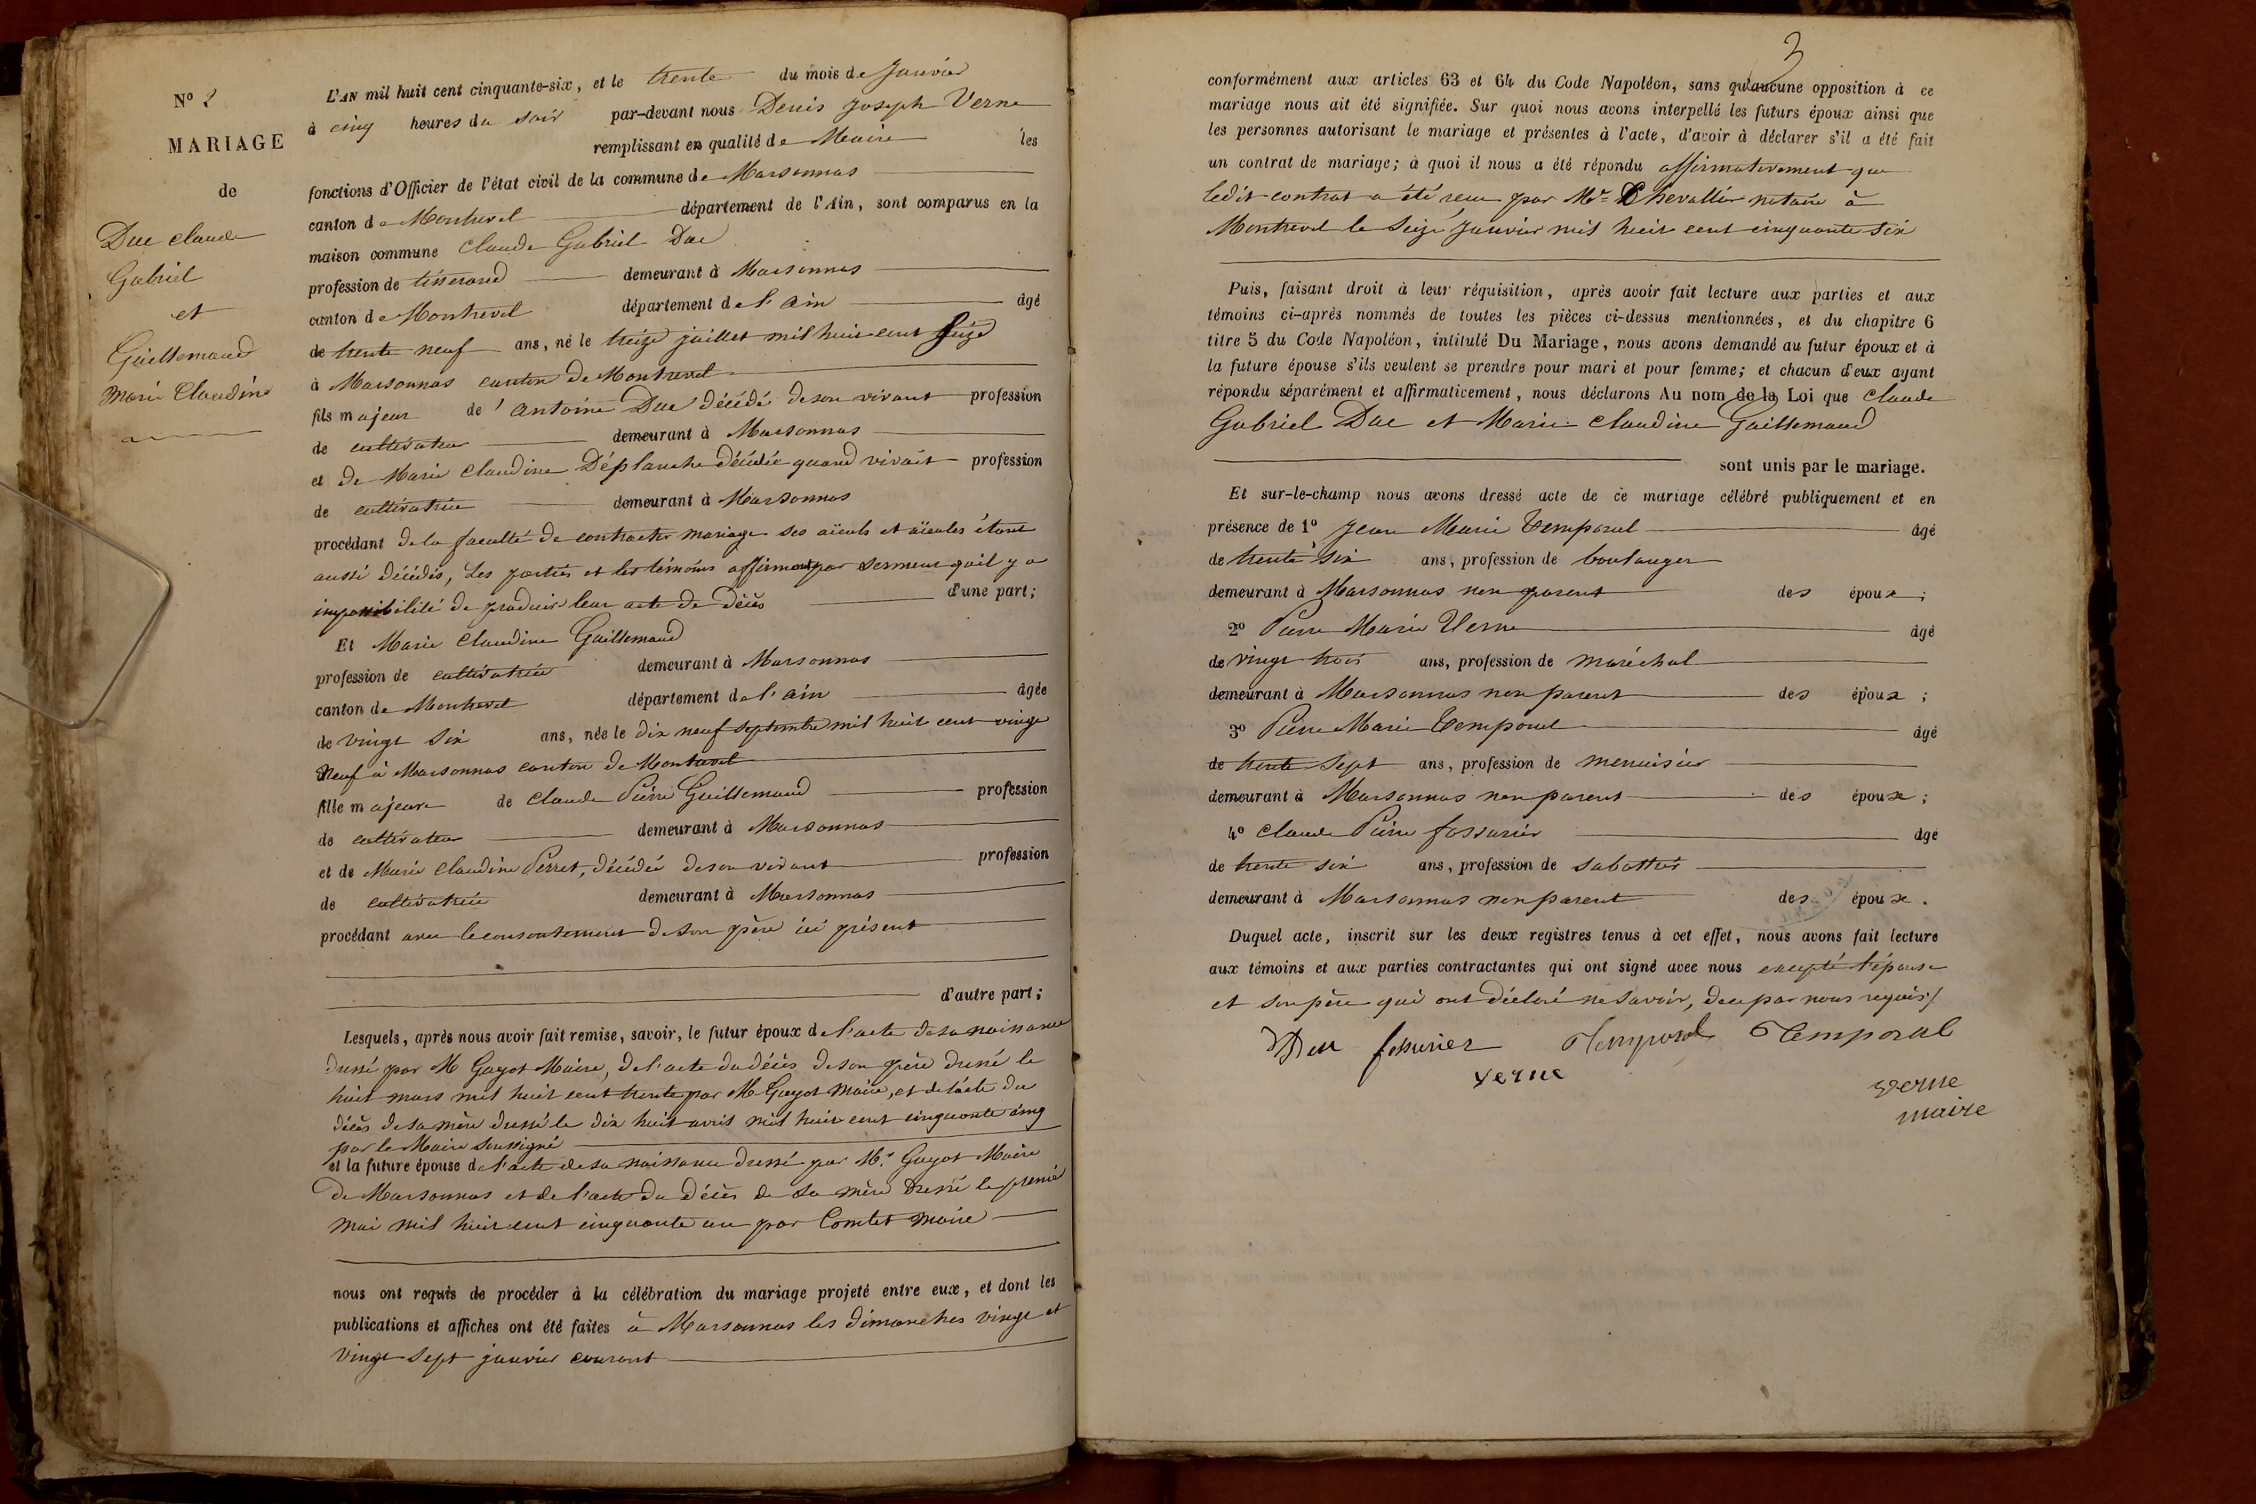 N° 2
MARIAGE
de
Duc Claude
Gabriel
et
Guillemaud
Marie Claudine
L'AN mil huit cent cinquante-six, et le trente du mois de Janvier
à cinq heures du soir par-devant nous Denis Joseph Verne
remplissant en qualité de Maire les
fonctions d'Officier de l'état civil de la commune de Marsonnas
canton de Montrevel département de l'Ain, sont comparus en la
maison commune Claude Gabriel Duc
profession de tisserand demeurant à Marsonnas
canton de Montrevel département de l'ain âgé
de trente neuf ans, né le treize juillet mil huit cent seize
à Marsonnas canton de Montrevel
fils majeur de Antoine Duc décédé de son vivant profession
de cultivateur demeurant à Marsonnas
et de Marie Claudine Déplanche décédée quand vivait profession
de cultivatrice demeurant à Marsonnas
procédant de la faculté de contracter mariage ses aïeuls et aïeules étant
aussi décédés, Les parties et les témoins affirmant par serment qu'il y a
impossibilité de produire leur acte de décès d'une part;
Et Marie Claudine Guillemaud
profession de cultivatrice demeurant à Marsonnas
canton de Montrevel département de l'ain âgée
de vingt six ans, née le dix neuf septembre mil huit cent vingt
neuf à Marsonnas canton de Montrevel
fille majeure de Claude Pierre Guillemaud profession
de cultivateur demeurant à Marsonnas
et de Marie Claudine Perret, décédée de son vivant profession
de cultivatrice demeurant à Marsonnas
procédant avec le consentement de son père ici présent
d'autre part;
Lesquels, après nous avoir fait remise, savoir, le futur époux de l'acte de sa naissance
dressé par M Gayot Maire, de l'acte du décès de son père dressé le
huit mars mil huit cent trente par M Gayot Maire, et de l'acte du
décès de sa mère dressé le dix huit avril mil huit cent cinquante cinq
par le Maire soussigné
et la future épouse de l'acte de sa naissance dressé par Mr Gayot Maire
de Marsonnas et de l'acte du décès de sa mère dressé le premier
mai mil huit cent cinquante un par Comtet maire
nous ont requis de procéder à la célébration du mariage projeté entre eux, et dont les
publications et affiches ont été faites à Marsonnas les dimanches vingt et
vingt sept janvier courant
3
conformément aux articles 63 et 64 du Code Napoléon, sans qu'aucune opposition à ce
mariage nous ait été signifiée. Sur quoi nous avons interpellé les futurs époux ainsi que
les personnes autorisant le mariage et présentes à l'acte, d'avoir à déclarer s'il a été fait
un contrat de mariage; à quoi il nous a été répondu affirmativement que
ledit contrat a été reçu par Mr Chevallier notaire à
Montrevel le seize janvier mil huit cent cinquante six
Puis, faisant droit à leur réquisition, après avoir fait lecture aux parties et aux
témoins ci-après nommés de toutes les pièces ci-dessus mentionnées, et du chapitre 6
titre 5 du Code Napoléon, intitulé Du Mariage, nous avons demandé au futur époux et à
la future épouse s'ils veulent se prendre pour mari et pour femme; et chacun d'eux ayant
répondu séparément et affirmativement, nous déclarons Au nom de la Loi que Claude
Gabriel Duc et Marie Claudine Guillemaud
sont unis par le mariage.
Et sur-le-champ nous avons dressé acte de ce mariage célébré publiquement et en
présence de 1° Jean Marie Temporal âgé
de trente six ans, profession de boulanger
demeurant à Marsonnas non parent des époux;
2° Pierre Marie Verne âgé
de vingt trois ans, profession de maréchal
demeurant à Marsonnas non parent des époux;
3° Pierre Marie Temporal âgé
de trente sept ans, profession de menuisier
demeurant à Marsonnas non parent des époux;
4° Claude Pierre fossurier âgé
de trente six ans, profession de sabottier
demeurant à Marsonnas non parent des époux.
Duquel acte, inscrit sur les deux registres tenus à cet effet, nous avons fait lecture
aux témoins et aux parties contractantes qui ont signé avec nous excepté l'épouse
et son père qui ont déclaré ne savoir, de ce par nous requis
fossurier Temporal Temporal
verne
verne
maire